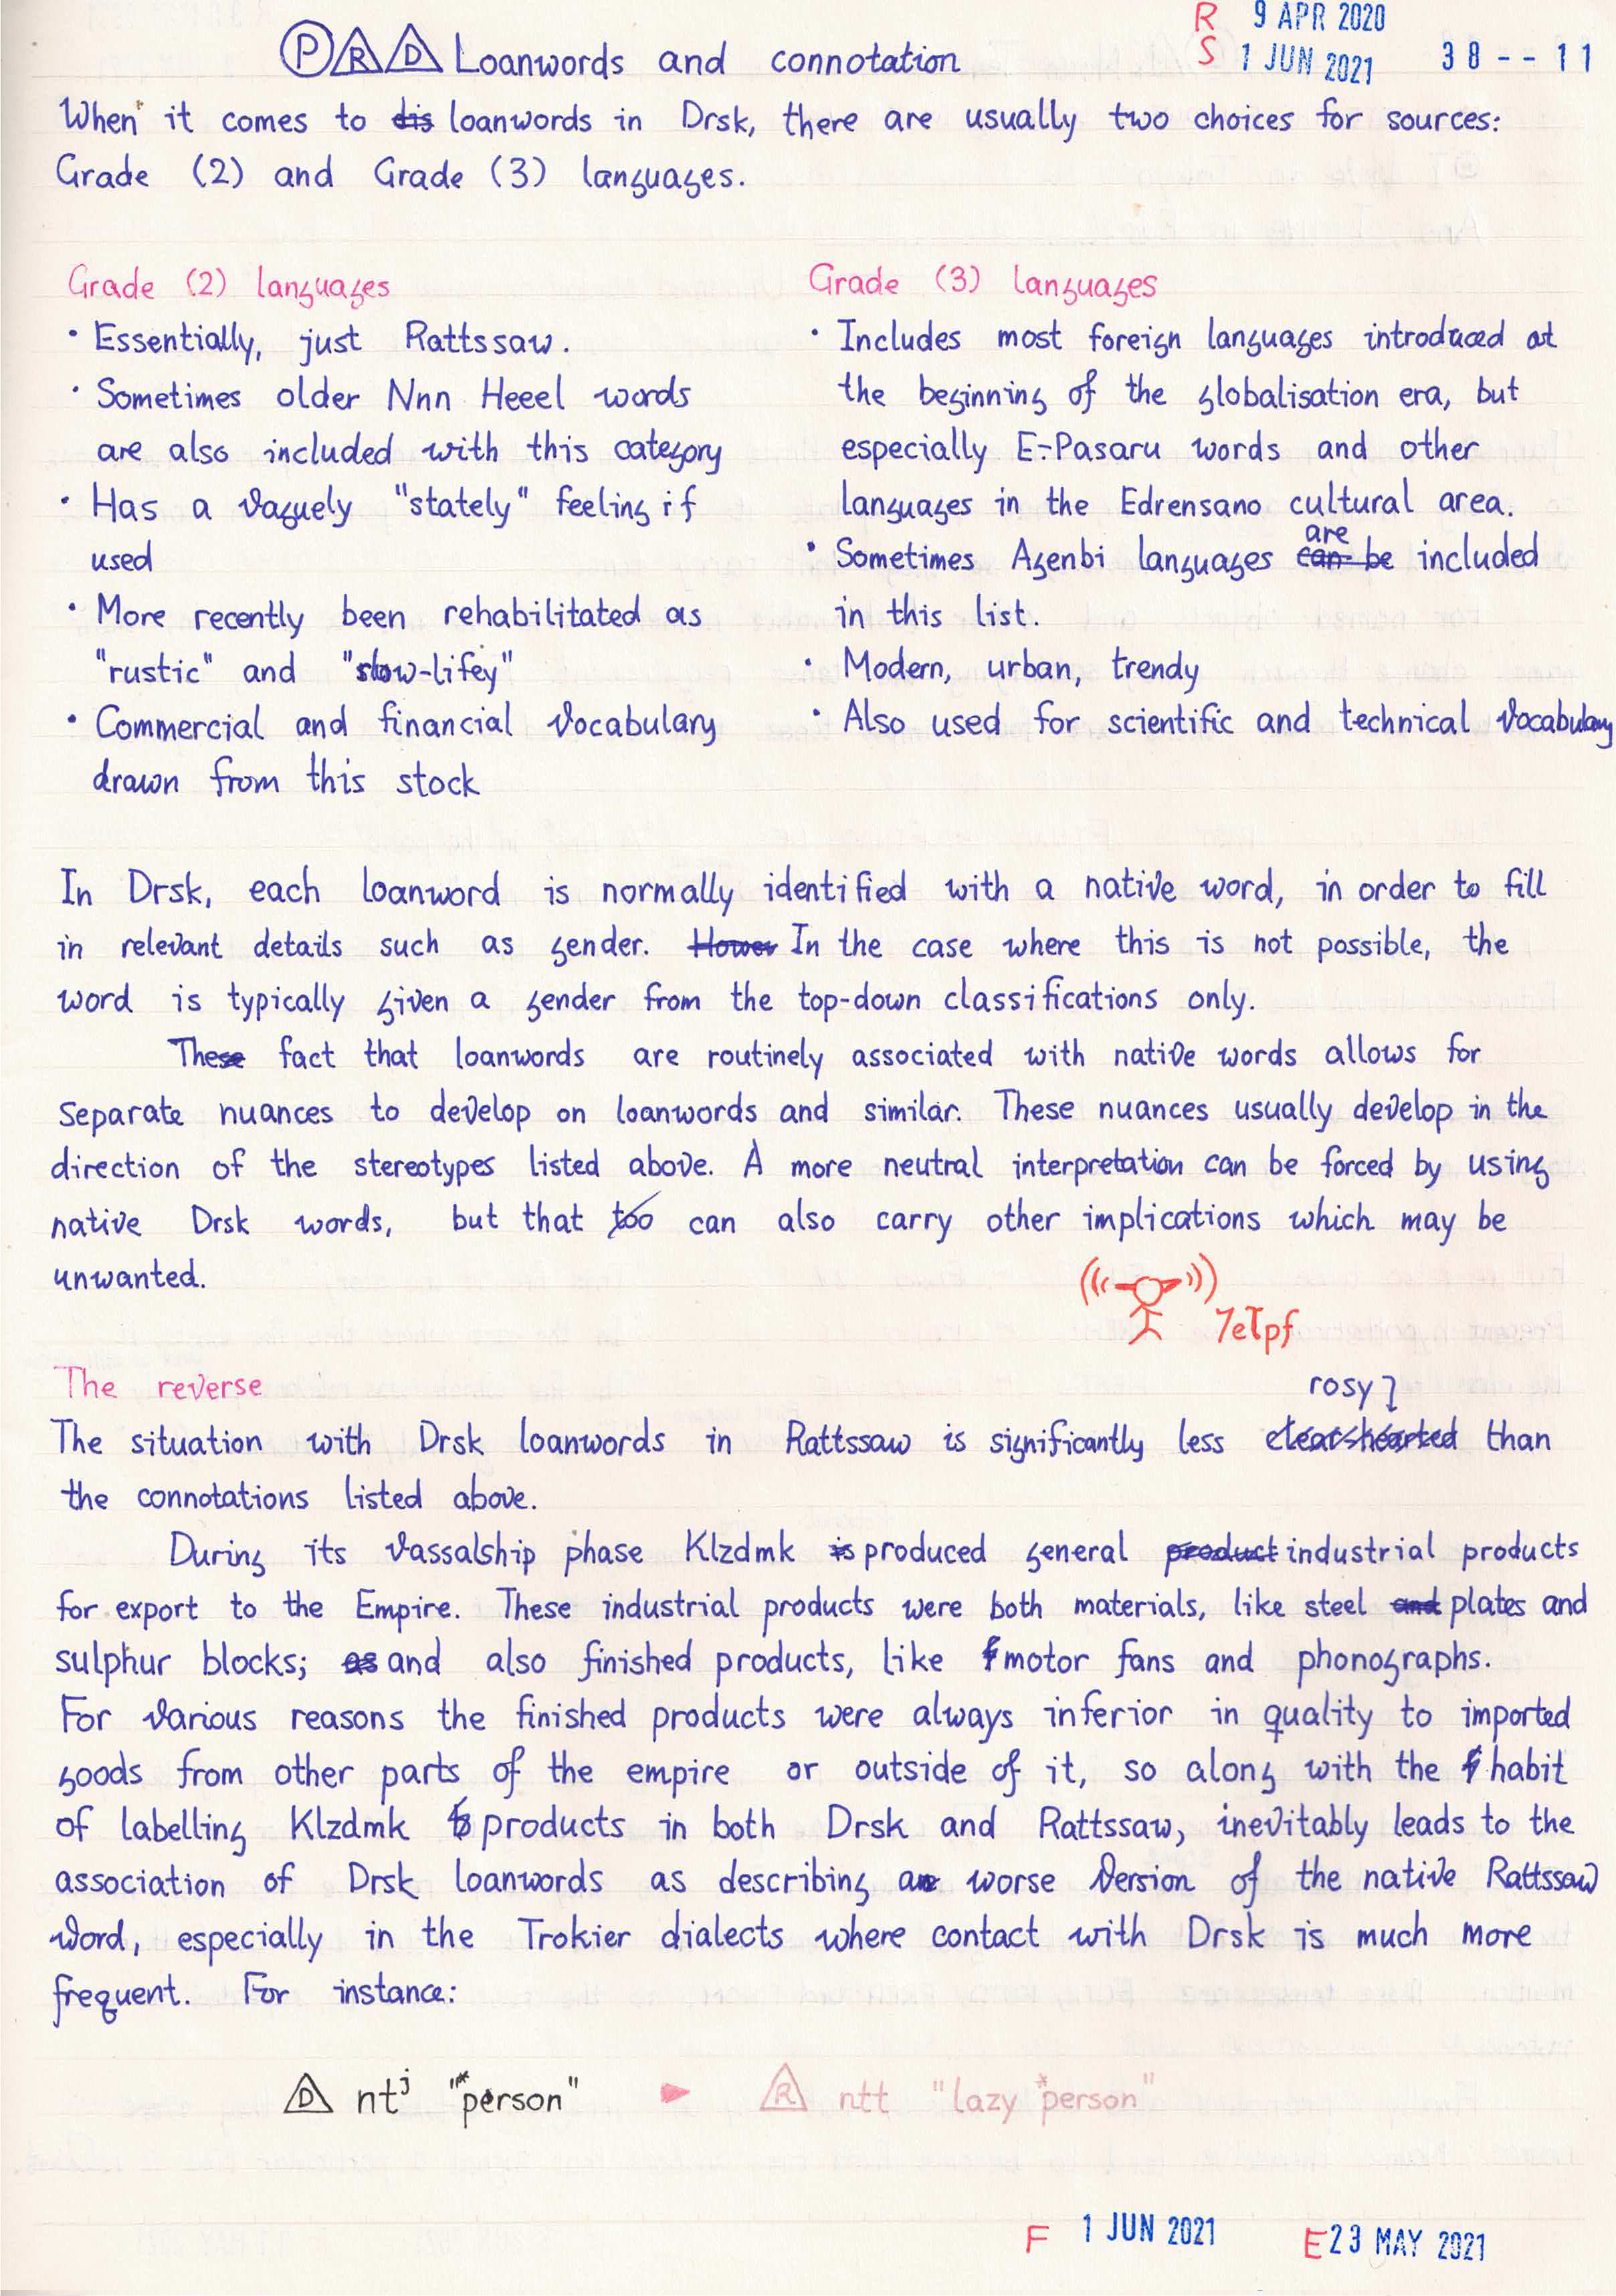 R 9 APR 2020
S 1 JUN 2021 38--11
P R D Loanwords and connotation
When it comes to dis loanwords in Drsk, there are usually two choices for sources:
Grade (2) and Grade (3) languages.
Grade (2) languages
• Essentially, just Rattssaw.
• Sometimes older Nnn Heeel words
are also included with this category
• Has a vaguely "stately" feeling if
used
• More recently been rehabilitated as
"rustic" and "slow-lifey"
• Commercial and financial vocabulary
drawn from this stock
Grade (3) languages
• Includes most foreign languages introduced at
the beginning of the globalisation era, but
especially E-Pasaru words and other
languages in the Edrensano cultural area.
are
• Sometimes Agenbi languages can be included
in this list.
• Modern, urban, trendy
• Also used for scientific and technical vocabulary
In Drsk, each loanword is normally identified with a native word, in order to fill
in relevant details such as gender. Howev In the case where this is not possible, the
word is typically given a gender from the top-down classifications only.
These fact that loanwords are routinely associated with native words allows for
separate nuances to develop on loanwords and similar. These nuances usually develop in the
direction of the stereotypes listed above. A more neutral interpretation can be forced by using
native Drsk words, but that too can also carry other implications which may be
unwanted.
The reverse
rosy
The situation with Drsk loanwords in Rattssaw is significantly less clear-hearted than
the connotations listed above.
During its vassalship phase Klzdmk is produced general product industrial products
for export to the Empire. These industrial products were both materials, like steel and plates and
sulphur blocks; as and also finished products, like f motor fans and phonographs.
For various reasons the finished products were always inferior in quality to imported
goods from other parts of the empire or outside of it, so along with the habit
of labelling Klzdmk products in both Drsk and Rattssaw, inevitably leads to the
association of Drsk loanwords as describing a worse version of the native Rattssaw
word, especially in the Trokier dialects where contact with Drsk is much more
frequent. For instance:
D ntʲ "*person" ► R ntt "lazy *person"
F 1 JUN 2021 E 23 MAY 2021